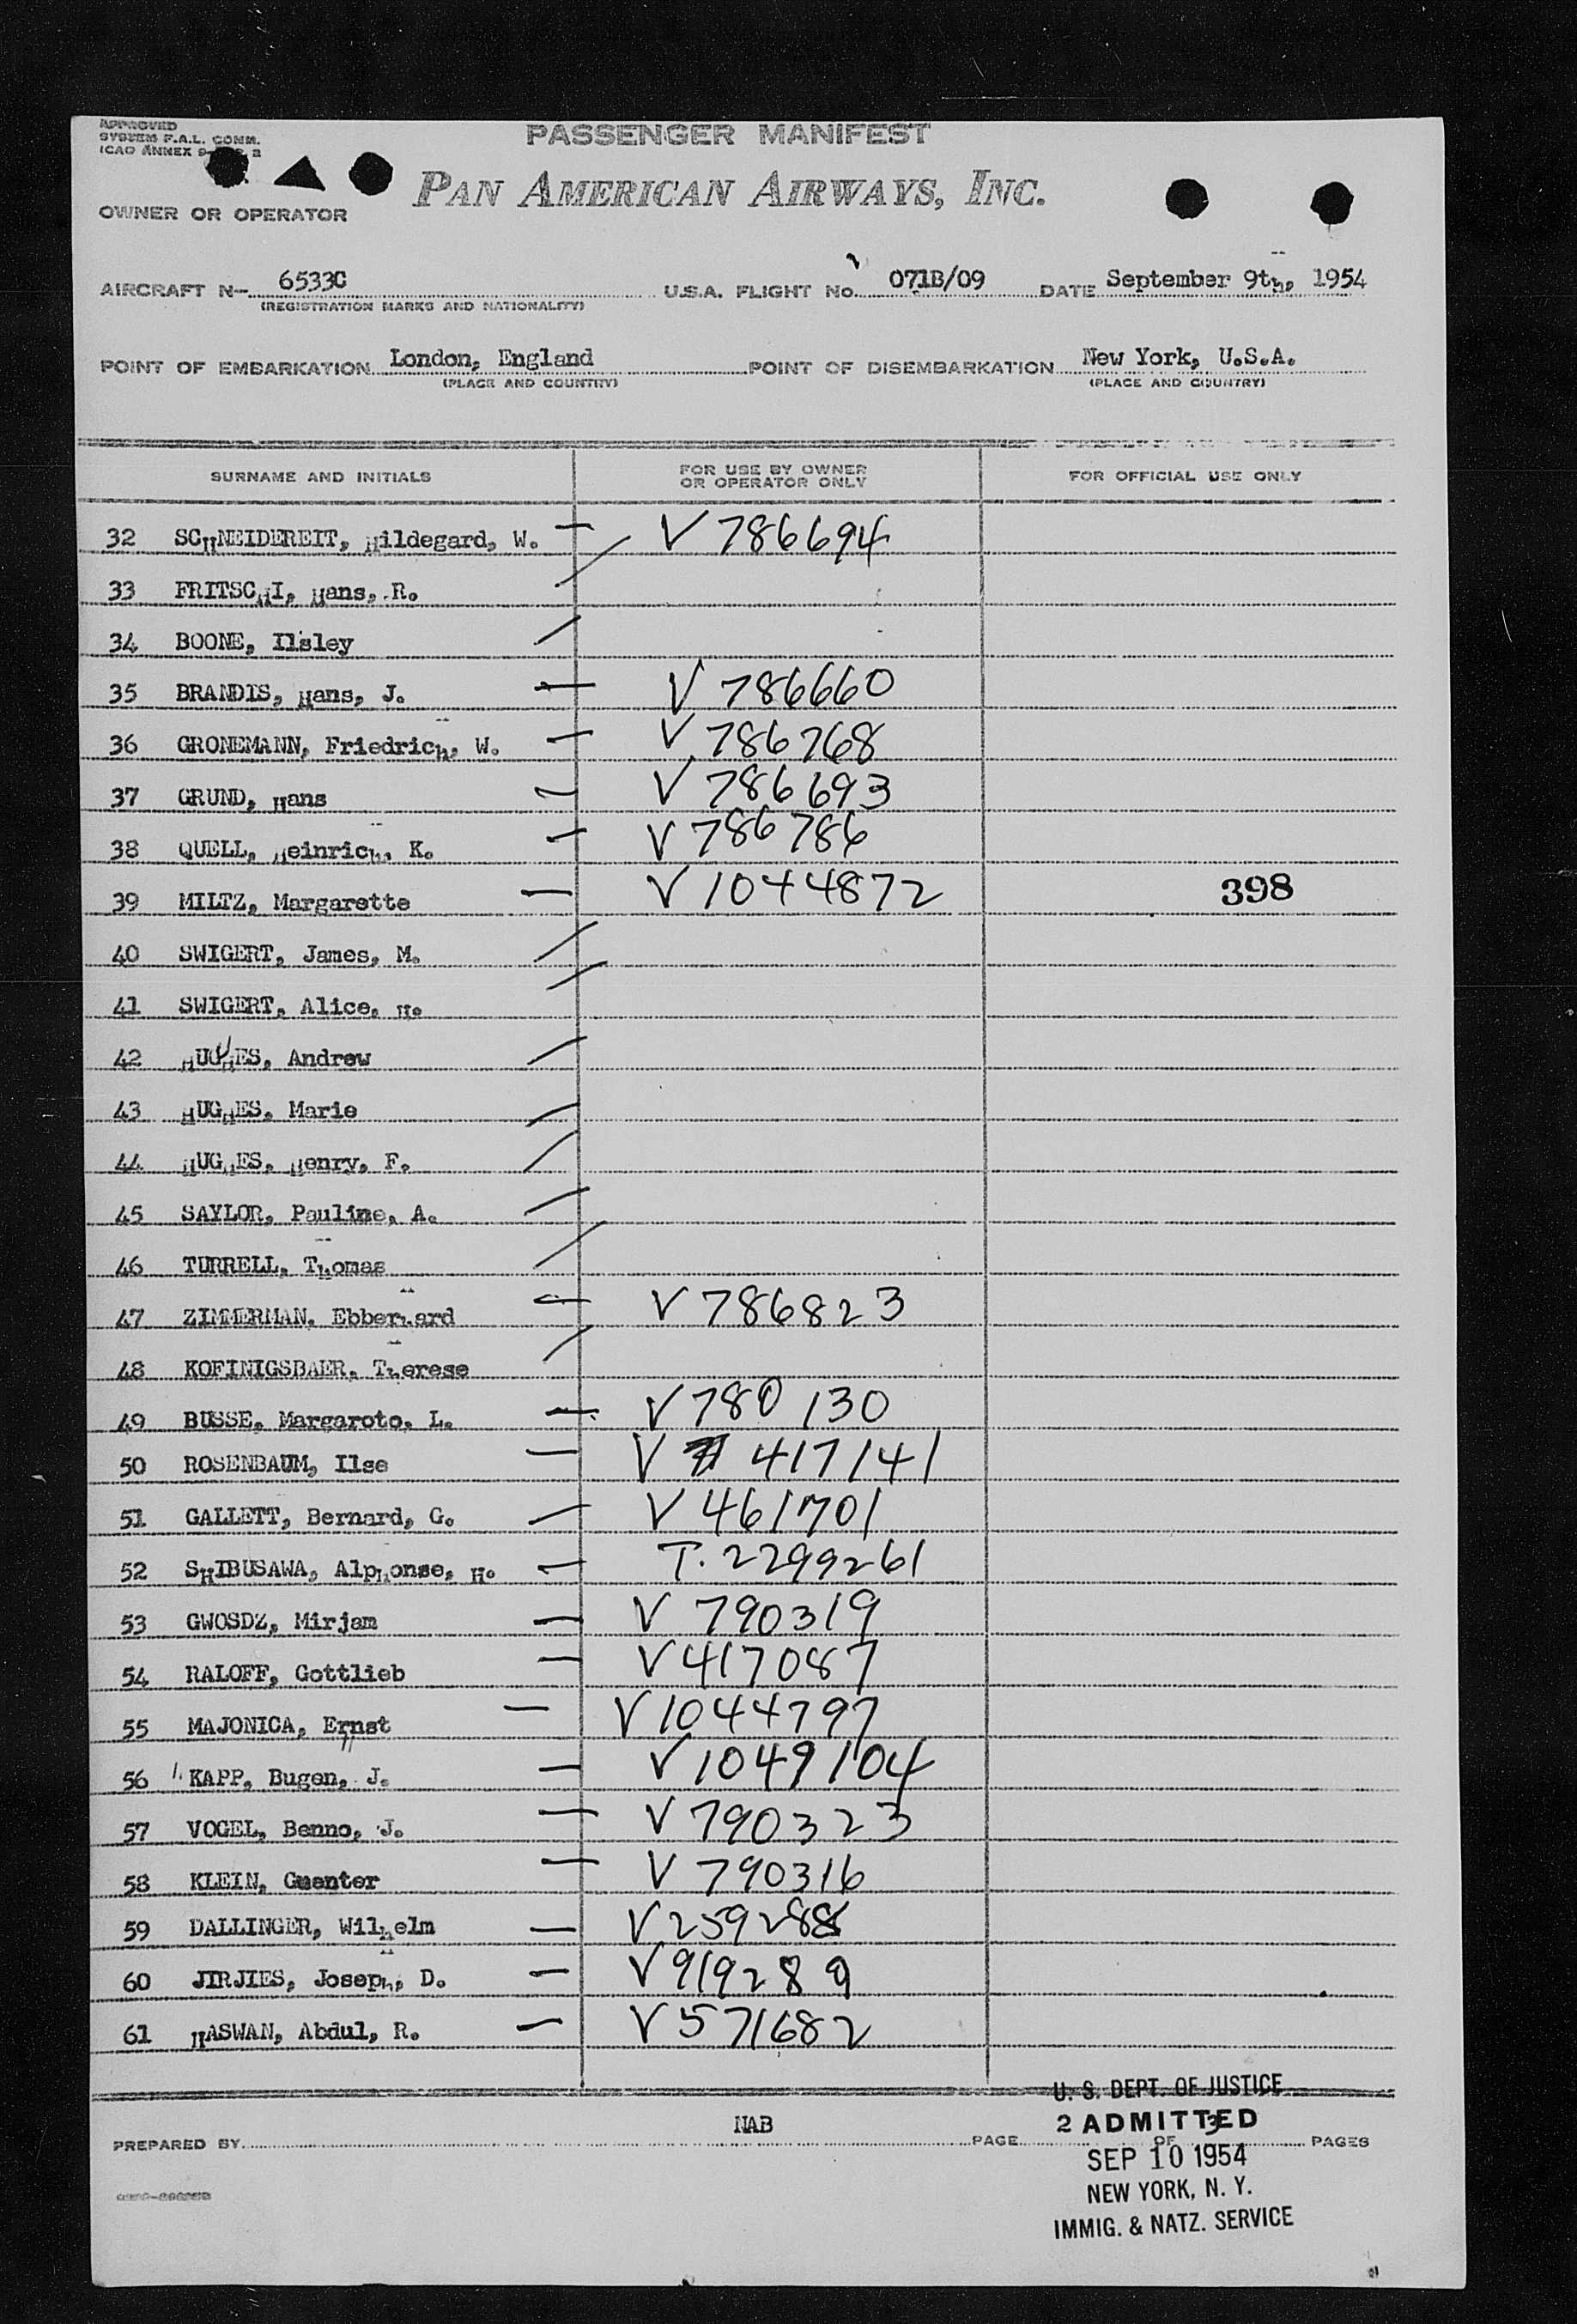 APPROVED
SYSTEM F.A.L. COMM.
ICAO ANNEX 9
PASSENGER MANIFEST
PAN AMERICAN AIRWAYS, INC.
OWNER OR OPERATOR
AIRCRAFT N- 6533C U.S.A. FLIGHT No. 071B/09 DATE September 9th, 1954
(REGISTRATION MARKS AND NATIONALITY)
POINT OF EMBARKATION London, England POINT OF DISEMBARKATION New York, U.S.A.
(PLACE AND COUNTRY) (PLACE AND COUNTRY)
SURNAME AND INITIALS FOR USE BY OWNER OR OPERATOR ONLY FOR OFFICIAL USE ONLY
32 SCHNEIDEREIT, Hildegard, W. — V 786694
33 FRITSCHI, Hans, R. /
34 BOONE, Ilsley /
35 BRANDIS, Hans, J. — V 786660
36 GRONEMANN, Friedrich, W. — V 786768
37 GRUND, Hans — V 786693
38 QUELL, Heinrich, K. — V 786786
39 MILTZ, Margarette — V 1044872 398
40 SWIGERT, James, M. /
41 SWIGERT, Alice, H. /
42 HUGHES, Andrew /
43 HUGHES, Marie /
44 HUGHES, Henry, F. /
45 SAYLOR, Pauline, A. /
46 TURRELL, Thomas /
47 ZIMMERMAN, Ebberhard — V 786823
48 KOFINIGSBAER, Therese /
49 BUSSE, Margaroto, L. — V 780130
50 ROSENBAUM, Ilse — V 417141
51 GALLETT, Bernard, G. — V 461701
52 SHIBUSAWA, Alphonse, H. — T. 2299261
53 GWOSDZ, Mirjam — V 790319
54 RALOFF, Gottlieb — V 417087
55 MAJONICA, Ernst — V 1044797
56 KAPP, Bugen, J. — V 1049104
57 VOGEL, Benno, J. — V 790323
58 KLEIN, Guenter — V 790316
59 DALLINGER, Wilhelm — V 259288
60 JIRJIES, Joseph, D. — V 919289
61 HASWAN, Abdul, R. — V 571682
U. S. DEPT. OF JUSTICE
PREPARED BY NAB PAGE 2 OF 3 PAGES
ADMITTED
SEP 10 1954
NEW YORK, N. Y.
IMMIG. & NATZ. SERVICE